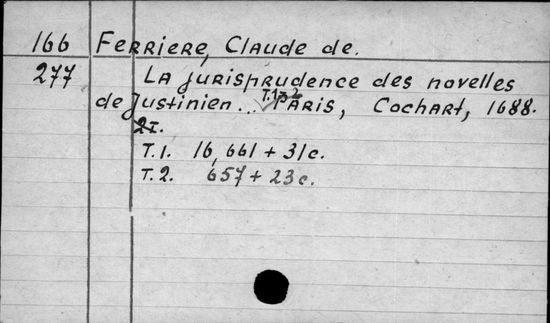 166 Ferriere, Claude de.
277 La jurisprudence des novelles
de Justinien... T.1-2 Paris, Cochart, 1688.
2т.
T.1. 16, 661 + 31c.
T.2. 657 + 23c.